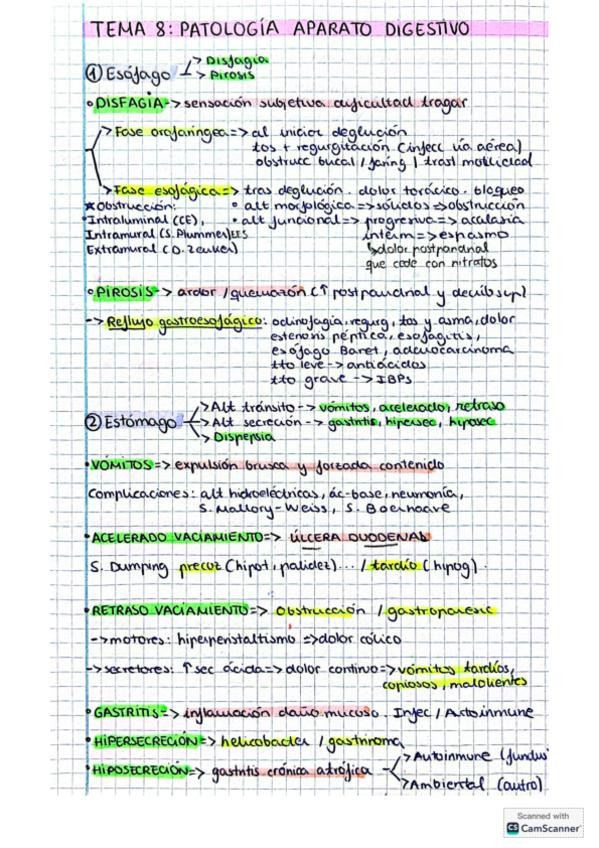 TEMA 8: PATOLOGÍA APARATO DIGESTIVO
① Esófago -> Disfagia
-> Pirosis
• DISFAGIA -> sensación subjetiva dificultad tragar
> Fase orofaríngea => al iniciar deglución
tos + regurgitación (infecc vía aérea)
obstrucc bucal / faring / trast motilidad
> Fase esofágica => tras deglución. dolor torácico. bloqueo
* Obstrucción: • alt morfológica => sólidos => obstrucción
Intraluminal (CE), • alt funcional => progresiva => acalasia
Intramural (S. Plummer) EES interm => espasmo
Extramural (D. Zenker) ↳ dolor postpandrial
que cede con nitratos
• PIROSIS -> ardor / quemazón (↑ postpandrial y decúb supl)
-> Reflujo gastroesofágico: odinofagia, regurg, tos y asma, dolor
estenosis péptica, esofagitis,
esófago Baret, adenocarcinoma
tto leve -> antiácidos
tto grave -> IBPs
② Estómago -> Alt tránsito -> vómitos, acelerado, retraso
-> Alt secreción -> gastritis, hipersec, hiposec
-> Dispepsia
• VÓMITOS => expulsión brusca y forzada contenido
Complicaciones: alt hidroeléctricas, ác-base, neumonía,
S. Mallory-Weiss, S. Boerhaave
• ACELERADO VACIAMIENTO => ÚLCERA DUODENAL
S. Dumping precoz (hipot, palidez)... / tardío (hipog).
• RETRASO VACIAMIENTO => Obstrucción / gastroparesic
-> motores: hiperperistaltismo => dolor cólico
-> secretores: ↑ sec ácida => dolor continuo => vómitos tardíos,
copiosos, malolientes
• GASTRITIS -> inflamación daño mucoso. Infec / Autoinmune
• HIPERSECRECIÓN => helicobacter / gastrinoma
• HIPOSECRECIÓN => gastritis crónica atrófica -> Autoinmune (fundus
-> Ambiental (antro)
Scanned with
CS CamScanner